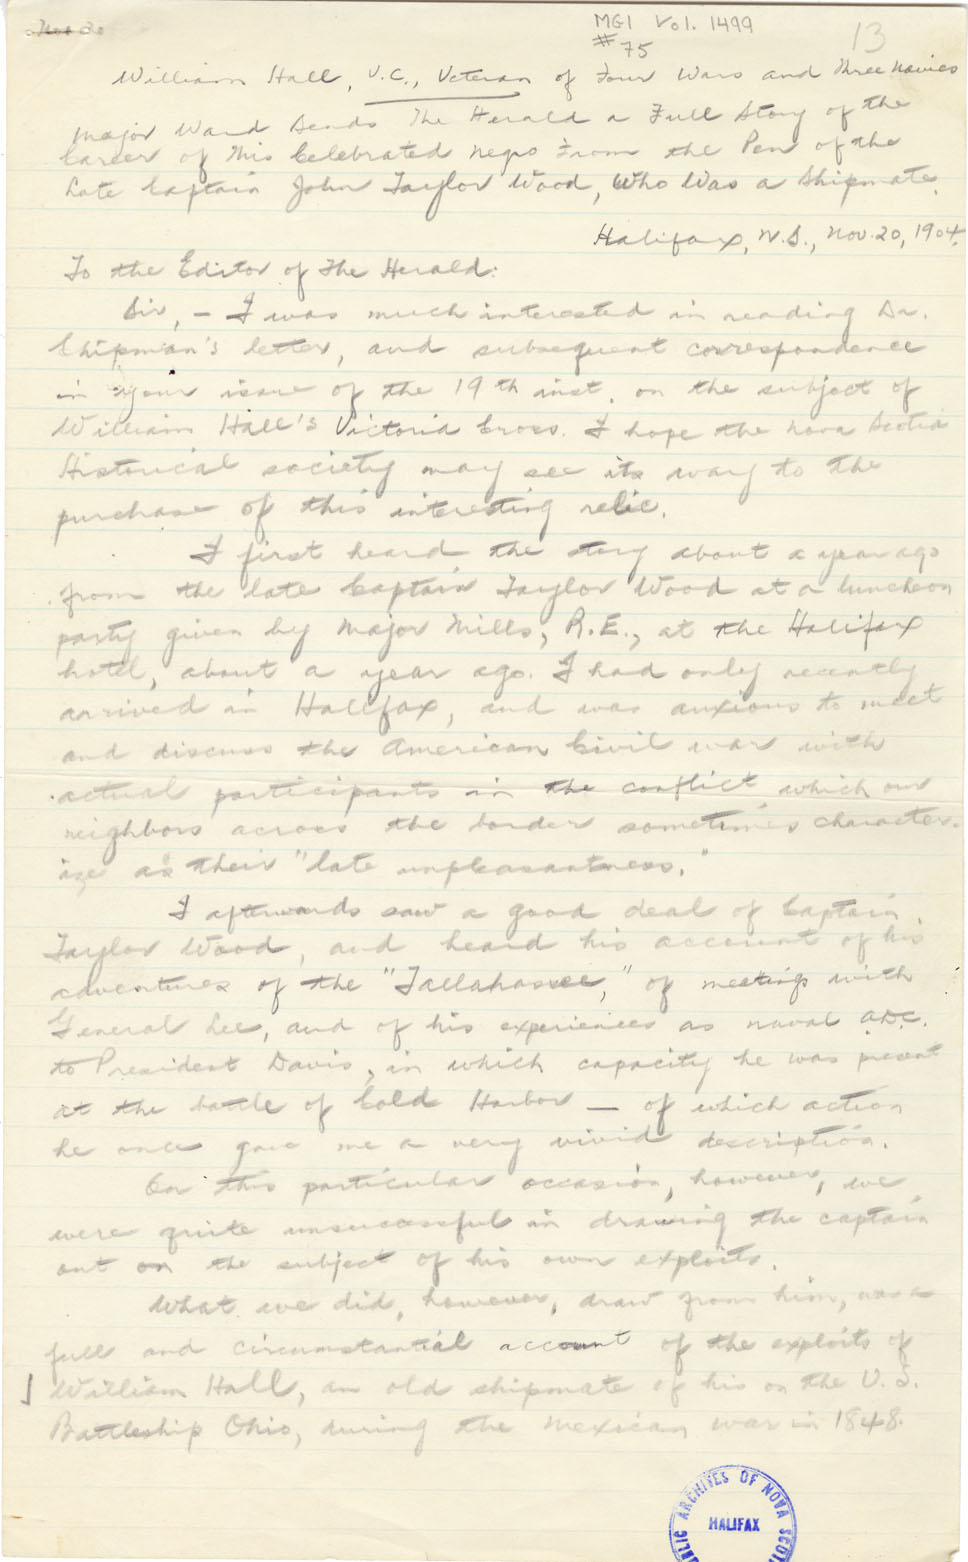 MG1 Vol. 1499
#75
13
William Hall, V.C., Veteran of Four Wars and Three Navies
Major Ward Sends The Herald a Full Story of the
Career of This Celebrated Negro From the Pen of the
Late Captain John Taylor Wood, Who Was a Shipmate.
Halifax, N.S., Nov. 20, 1904.
To the Editor of The Herald:
Sir, – I was much interested in reading Dr.
Chipman's letter, and subsequent correspondence
in your issue of the 19th inst. on the subject of
William Hall's Victoria Cross. I hope the Nova Scotia
Historical society may see its way to the
purchase of this interesting relic.
I first heard the story about a year ago
from the late Captain Taylor Wood at a luncheon
party given by Major Mills, R.E., at the Halifax
hotel, about a year ago. I had only recently
arrived in Halifax, and was anxious to meet
and discuss the American Civil war with
actual participants in the conflict which our
neighbors across the border sometimes character-
ize as their "late unpleasantness."
I afterwards saw a good deal of Captain
Taylor Wood, and heard his account of his
adventures of the "Tallahassee," of meetings with
General Lee, and of his experiences as naval A.D.C.
to President Davis, in which capacity he was present
at the battle of Cold Harbor – of which action
he once gave me a very vivid description.
On this particular occasion, however, we
were quite unsuccessful in drawing the captain
out on the subject of his own exploits.
What we did, however, draw from him, was a
full and circumstantial account of the exploits of
William Hall, an old shipmate of his on the U.S.
Battleship Ohio, during the Mexican war in 1848.
PUBLIC ARCHIVES OF NOVA SCOTIA
HALIFAX